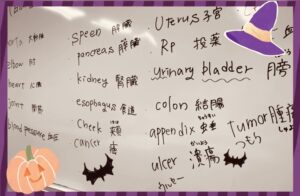 elbow 肘
heart 心臓
joint 関節
blood pressure 血圧
speen 脾臓
pancreas 膵臓
kidney 腎臓
esophagus 食道
cheek 頬
cancer 癌
uterus 子宮
Rp 投薬
urinary bladder 膀
colon 結腸
appendix 虫垂
ulcer 潰瘍
かいよう
Tumor 腫瘍